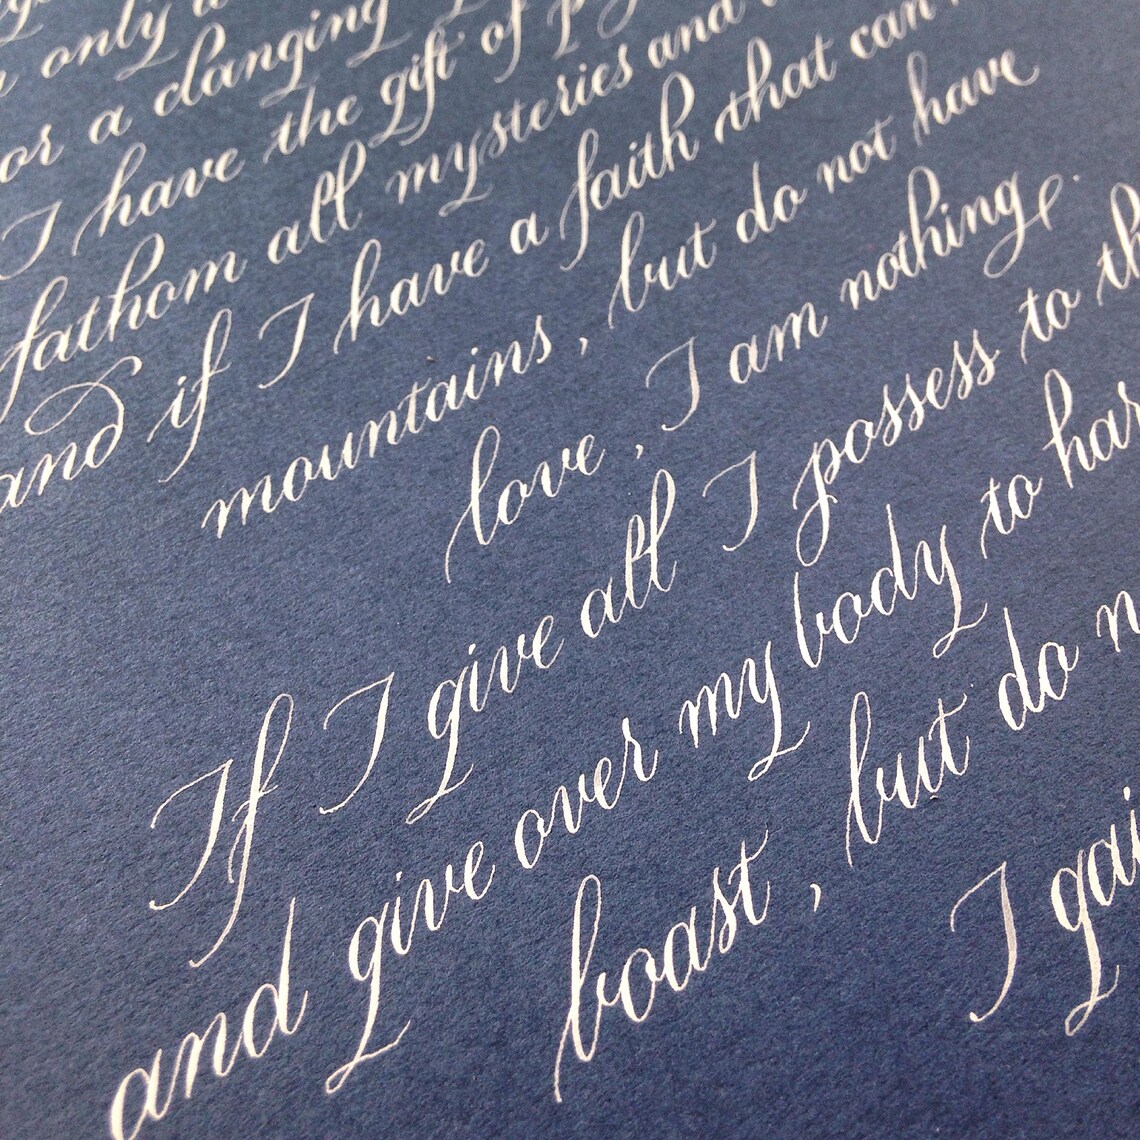 only
or a clanging
I have the gift of
fathom all mysteries and
and if I have a faith that can
mountains, but do not have
love, I am nothing.
If I give all I possess to th
and give over my body to har
boast, but do n
I gai